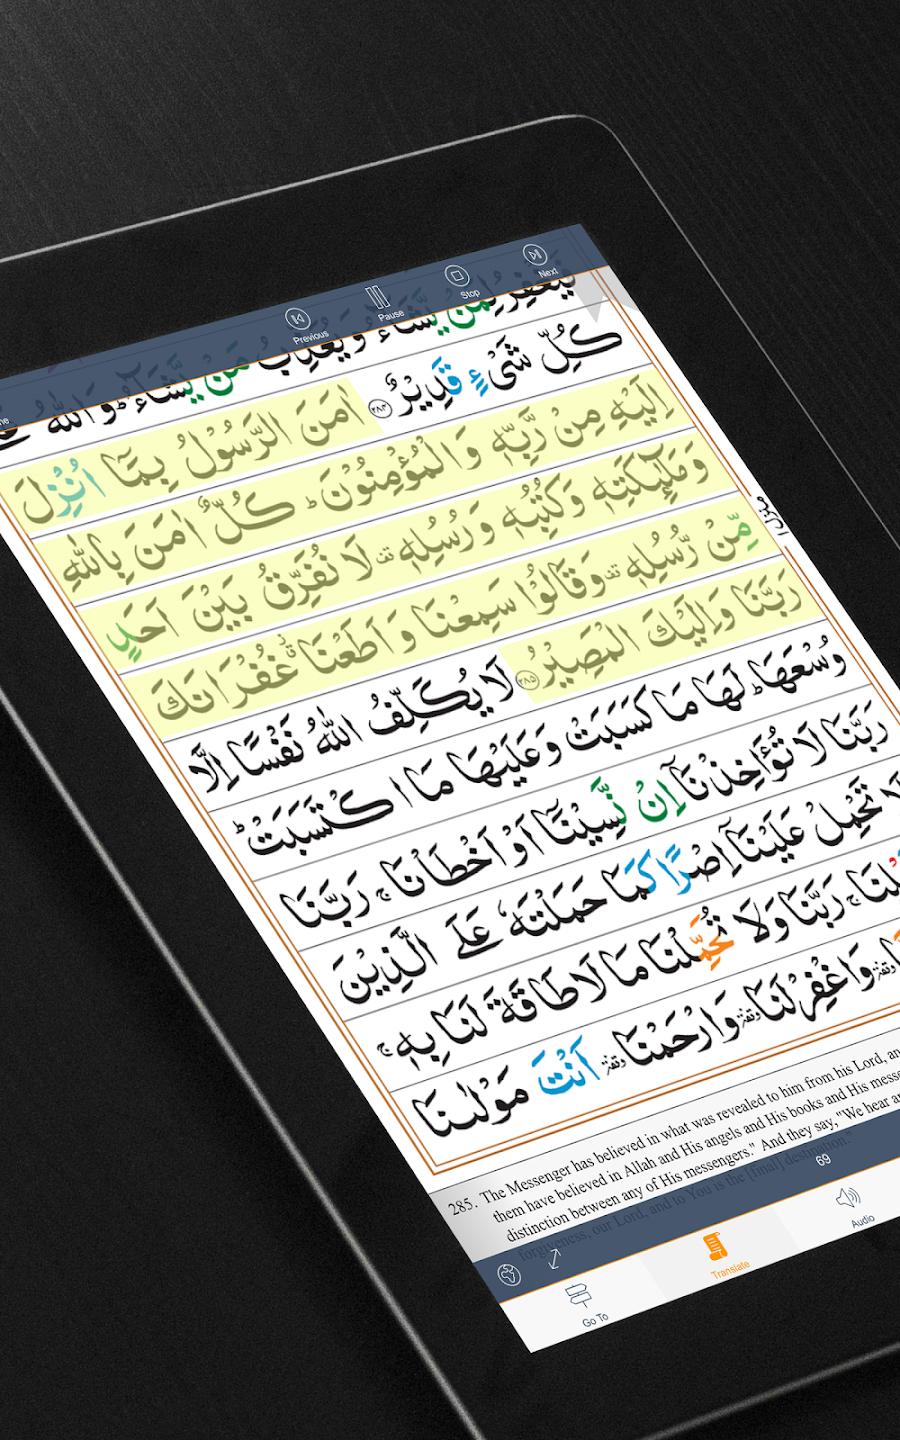 Previous Pause Stop Next
فَيَغْفِرُ لِمَنْ يَّشَآءُ وَيُعَذِّبُ مَنْ يَّشَآءُ ؕ وَاللّٰهُ
كُلِّ شَىْءٍ قَدِيْرٌ ﴿۲۸۴﴾ اٰمَنَ الرَّسُوْلُ بِمَآ اُنْزِلَ
اِلَيْهِ مِنْ رَّبِّهٖ وَالْمُؤْمِنُوْنَ ؕ كُلٌّ اٰمَنَ بِاللّٰهِ
وَمَلٰٓئِكَتِهٖ وَكُتُبِهٖ وَرُسُلِهٖ لَا نُفَرِّقُ بَيْنَ اَحَدٍ
مِّنْ رُّسُلِهٖ وَقَالُوْا سَمِعْنَا وَاَطَعْنَا غُفْرَانَكَ
رَبَّنَا وَاِلَيْكَ الْمَصِيْرُ ﴿۲۸۵﴾ لَا يُكَلِّفُ اللّٰهُ نَفْسًا اِلَّا
وُسْعَهَا ؕ لَهَا مَا كَسَبَتْ وَعَلَيْهَا مَا اكْتَسَبَتْ ؕ
رَبَّنَا لَا تُؤَاخِذْنَآ اِنْ نَّسِيْنَآ اَوْ اَخْطَاْنَا ۚ رَبَّنَا
وَلَا تَحْمِلْ عَلَيْنَآ اِصْرًا كَمَا حَمَلْتَهٗ عَلَى الَّذِيْنَ
رَبَّنَا وَلَا تُحَمِّلْنَا مَا لَا طَاقَةَ لَنَا بِهٖ ۚ
وقفة وَاغْفِرْ لَنَا وقفة وَارْحَمْنَا وقفة اَنْتَ مَوْلٰىنَا
285. The Messenger has believed in what was revealed to him from his Lord, and
them have believed in Allah and His angels and His books and His
distinction between any of His messengers." And they say, "We hear
forgiveness, our Lord, and to You is the [final] destination."
69
Go To Translate Audio